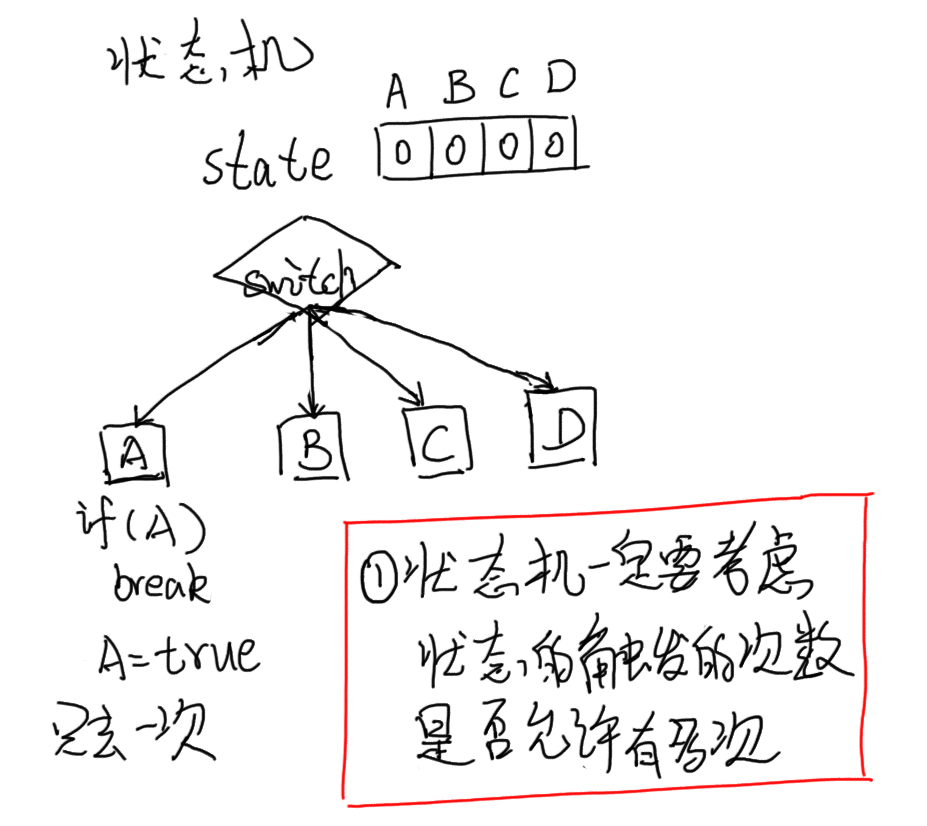 状态机
A B C D
state 0 0 0 0
switch
A B C D
if(A)
break
A=true
只去一次
①状态机一定要考虑
状态的触发的次数
是否允许有多次